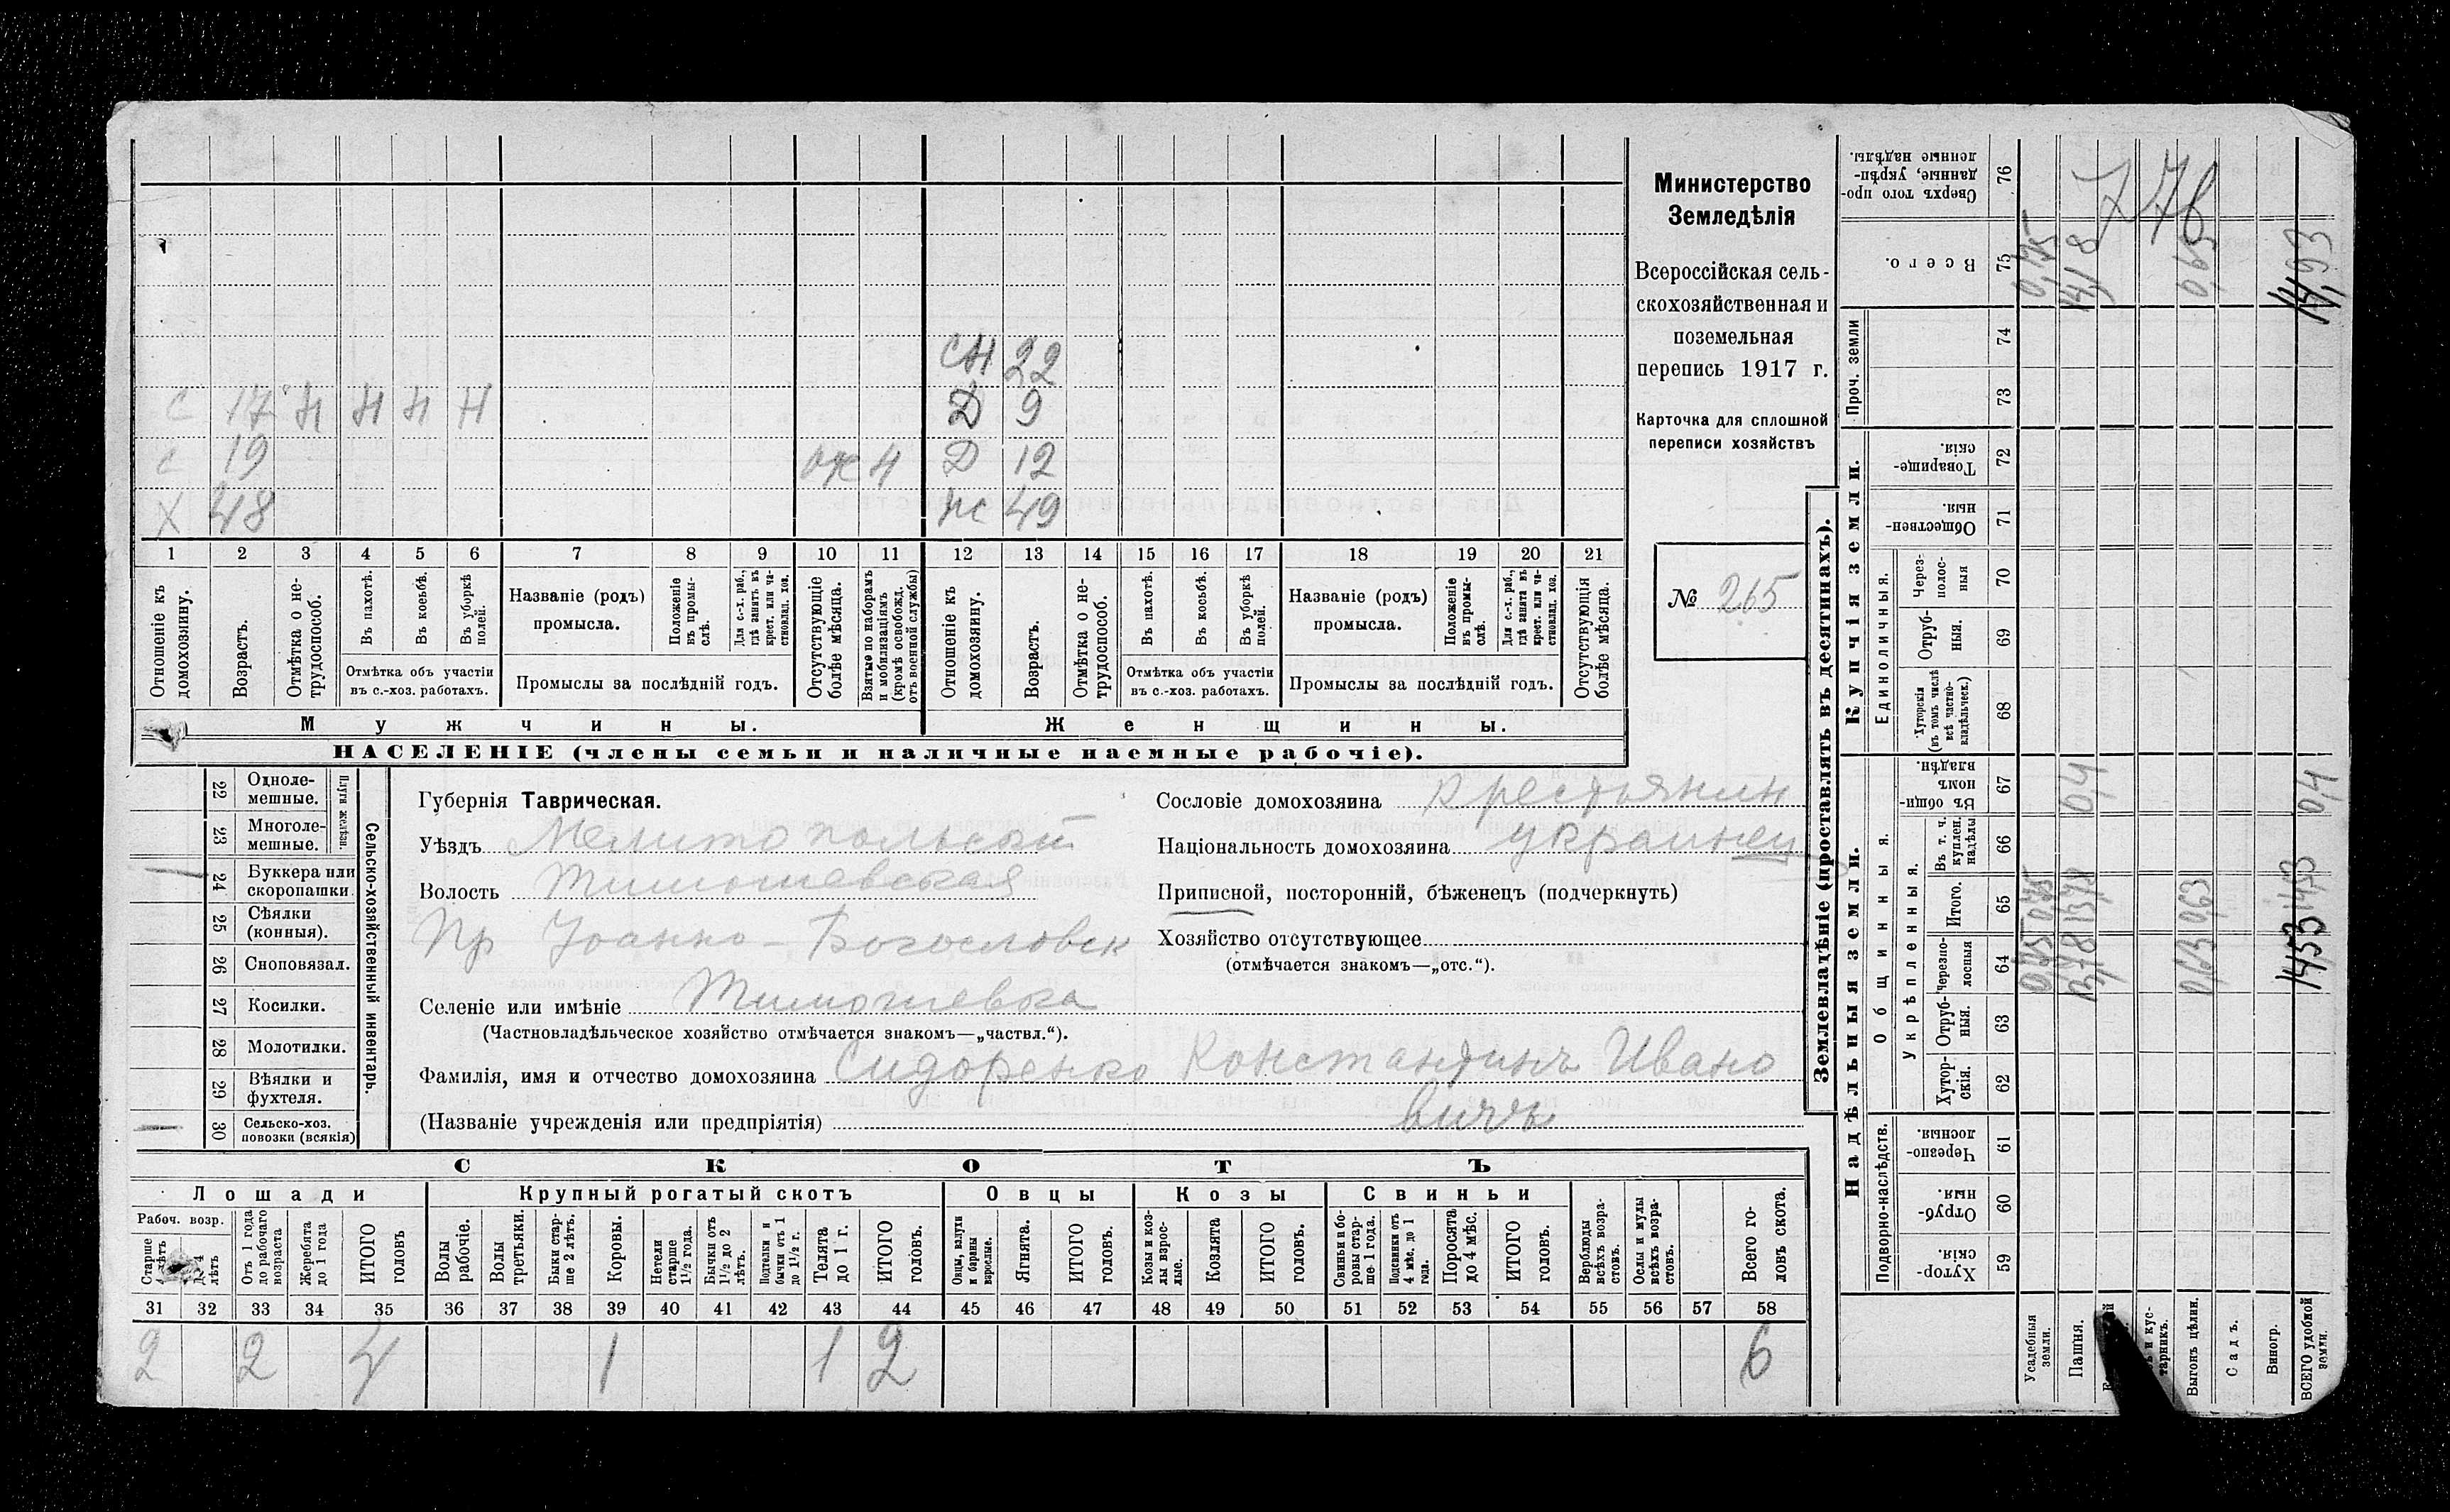 Министерство
Земледѣлія
Всероссійская сель-
скохозяйственная и
поземельная
перепись 1917 г.
Карточка для сплошной
переписи хозяйствъ
№ 265
СН 22
С 17 Н Н Н Н Д 9
С 19 ОК 4 Д 12
Х 48 Ж 49
1 2 3 4 5 6 7 8 9 10 11 12 13 14 15 16 17 18 19 20 21
Отношеніе къ домохозяину.
Возрастъ.
Отмѣтка о не-трудоспособ.
Въ пахотѣ.
Въ косьбѣ.
Въ уборкѣ полей.
Отмѣтка объ участіи въ с.-хоз. работахъ.
Названіе (родъ) промысла.
Положеніе въ промы-слѣ.
Для с.-х. раб., гдѣ занятъ въ крест. или ча-стновлад. хоз.
Промыслы за послѣдній годъ.
Отсутствующіе болѣе мѣсяца.
Взятые по наборамъ и мобилизаціямъ (кромѣ освобожд. отъ военной службы)
Отношеніе къ домохозяину.
Возрастъ.
Отмѣтка о не-трудоспособ.
Въ пахотѣ.
Въ косьбѣ.
Въ уборкѣ полей.
Отмѣтка объ участіи въ с.-хоз. работахъ.
Названіе (родъ) промысла.
Положеніе въ промы-слѣ.
Для с.-х. раб., гдѣ занята въ крест. или ча-стновлад. хоз.
Промыслы за послѣдній годъ.
Отсутствующія болѣе мѣсяца.
Мужчины. Женщины.
НАСЕЛЕНІЕ (члены семьи и наличные наемные рабочіе).
22 Одноле-мешные.
23 Многоле-мешные.
Плуги желѣзн.
24 Буккера или скоропашки.
25 Сѣялки (конныя).
26 Сноповязал.
27 Косилки.
28 Молотилки.
29 Вѣялки и фухтеля.
30 Сельско-хоз. повозки (всякія)
Сельско-хозяйственный инвентарь.
Губернія Таврическая.
Уѣздъ Мелитопольскій
Волость Тимошевская
Пр Іоанно-Богословск
Селеніе или имѣніе Тимошевка
(Частновладѣльческое хозяйство отмѣчается знакомъ—„частвл.“).
Фамилія, имя и отчество домохозяина Сидоренко Константинъ Ивано
вичъ
(Названіе учрежденія или предпріятія)
Сословіе домохозяина крестьянин
Національность домохозяина украинец
Приписной, посторонній, бѣженецъ (подчеркнуть)
Хозяйство отсутствующее
(отмѣчается знакомъ—„отс.“).
СКОТЪ
Лошади Крупный рогатый скотъ Овцы Козы Свиньи
Рабоч. возр.
Старше лѣтъ
4 лѣтъ
Отъ 1 года до рабочаго возраста
Жеребята до 1 года
ИТОГО головъ
Волы рабочіе.
Волы третьяки.
Быки стар-ше 2 лѣтъ.
Коровы.
Нетели старше 1½ года.
Бычки отъ 1½ до 2 лѣтъ.
Подтелки и бычки отъ 1 до 1½ г.
Телята до 1 г.
ИТОГО головъ.
Овцы, валухи и бараны взрослые.
Ягнята.
ИТОГО головъ.
Козы и коз-лы взрос-лые.
Козлята
ИТОГО головъ.
Свиньи и бо-ровы стар-ше 1 года.
Подсвинки отъ 4 мѣс. до 1 года.
Поросята до 4 мѣс.
ИТОГО головъ.
Верблюды всѣхъ возра-стовъ.
Ослы и мулы всѣхъ возра-стовъ.
Всего го-ловъ скота.
31 32 33 34 35 36 37 38 39 40 41 42 43 44 45 46 47 48 49 50 51 52 53 54 55 56 57 58
2 2 4 1 1 2 6
Землевладѣніе (проставлять въ десятинахъ).
Надѣльныя земли. Купчія земли.
Подворно-наслѣдств.
Общинныя.
Укрѣпленныя.
Единоличныя.
Проч. земли
59 Хутор-скія.
60 Отруб-ныя.
61 Черезпо-лосныя.
62 Хутор-скія.
63 Отруб-ныя.
64 Черезпо-лосныя
65 Итого.
66 Въ т. ч. куплен. надѣлы
67 Въ общи-номъ владѣн.
68 Хуторскія (въ томъ числѣ всѣ частно-владѣльческ.)
69 Отруб-ныя.
70 Через-полос-ныя
71 Обществен-ныя.
72 Товарище-скія.
73
74
75 Всего.
76 Сверхъ того про-данные, укрѣп-ленные надѣлы.
Усадебныя земли.
Пашня. 13,78 13,78 0,4 14,18
тарникъ.
Выгонъ цѣлин. 0,63 0,63
Садъ.
Виногр.
ВСЕГО удобной земли. 14,53 14,53 0,4 14,93